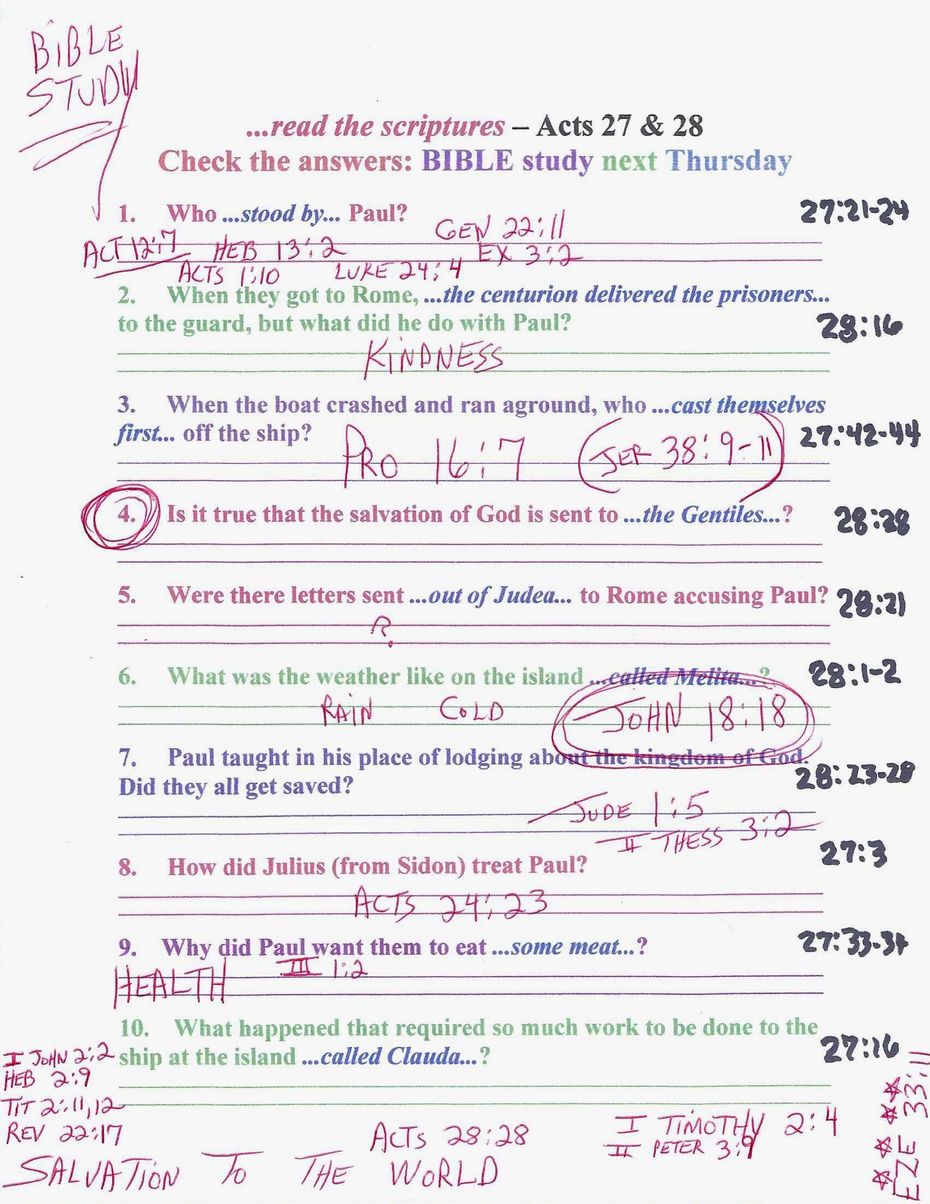 BIBLE
STUDY
...read the scriptures – Acts 27 & 28
Check the answers: BIBLE study next Thursday
1. Who ...stood by... Paul? 27:21-24
GEN 22:11
ACT 12:7 HEB 13:2 EX 3:2
ACTS 1:10 LUKE 24:4
2. When they got to Rome, ...the centurion delivered the prisoners...
to the guard, but what did he do with Paul? 28:16
KINDNESS
3. When the boat crashed and ran aground, who ...cast themselves
first... off the ship? 27:42-44
PRO 16:7 (JER 38:9-11)
4. Is it true that the salvation of God is sent to ...the Gentiles...? 28:28
5. Were there letters sent ...out of Judea... to Rome accusing Paul? 28:21
6. What was the weather like on the island ...called Melita...? 28:1-2
RAIN COLD JOHN 18:18
7. Paul taught in his place of lodging about the kingdom of God.
Did they all get saved? 28:23-28
JUDE 1:5
II THESS 3:2
8. How did Julius (from Sidon) treat Paul? 27:3
ACTS 24:23
9. Why did Paul want them to eat ...some meat...? 27:33-34
HEALTH III 1:2
10. What happened that required so much work to be done to the
ship at the island ...called Clauda...? 27:16
I JOHN 2:2
HEB 2:9
TIT 2:11,12
REV 22:17
ACTS 28:28
I TIMOTHY 2:4
II PETER 3:9
EZE 33:11
SALVATION TO THE WORLD